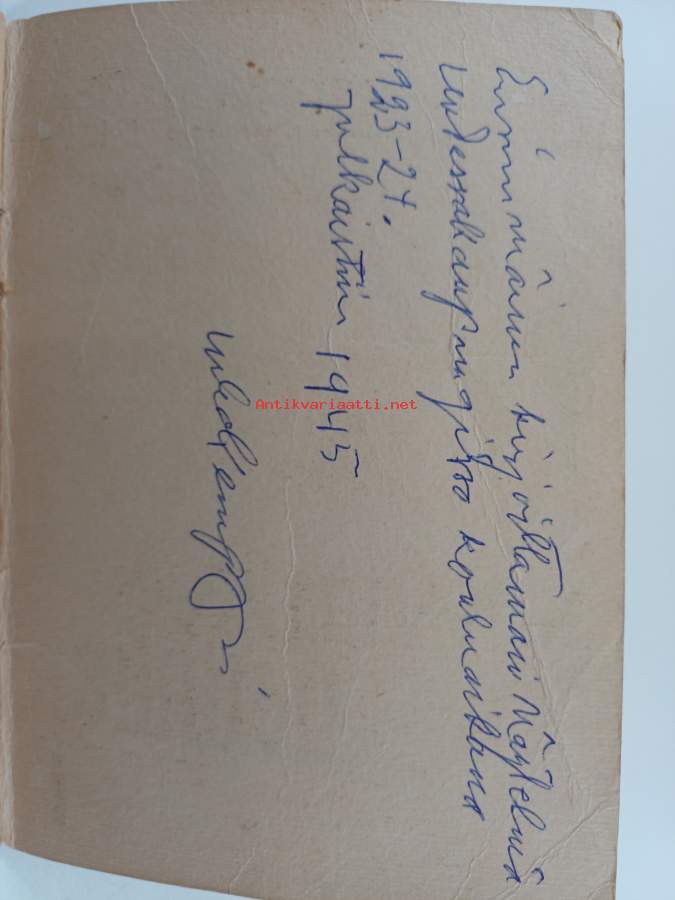 Ensimmäinen kirjoittamani näytelmä
Uudessakaupungissa kouluaikana
1923-24.
julkaistiin 1945
Antikvariaatti.net